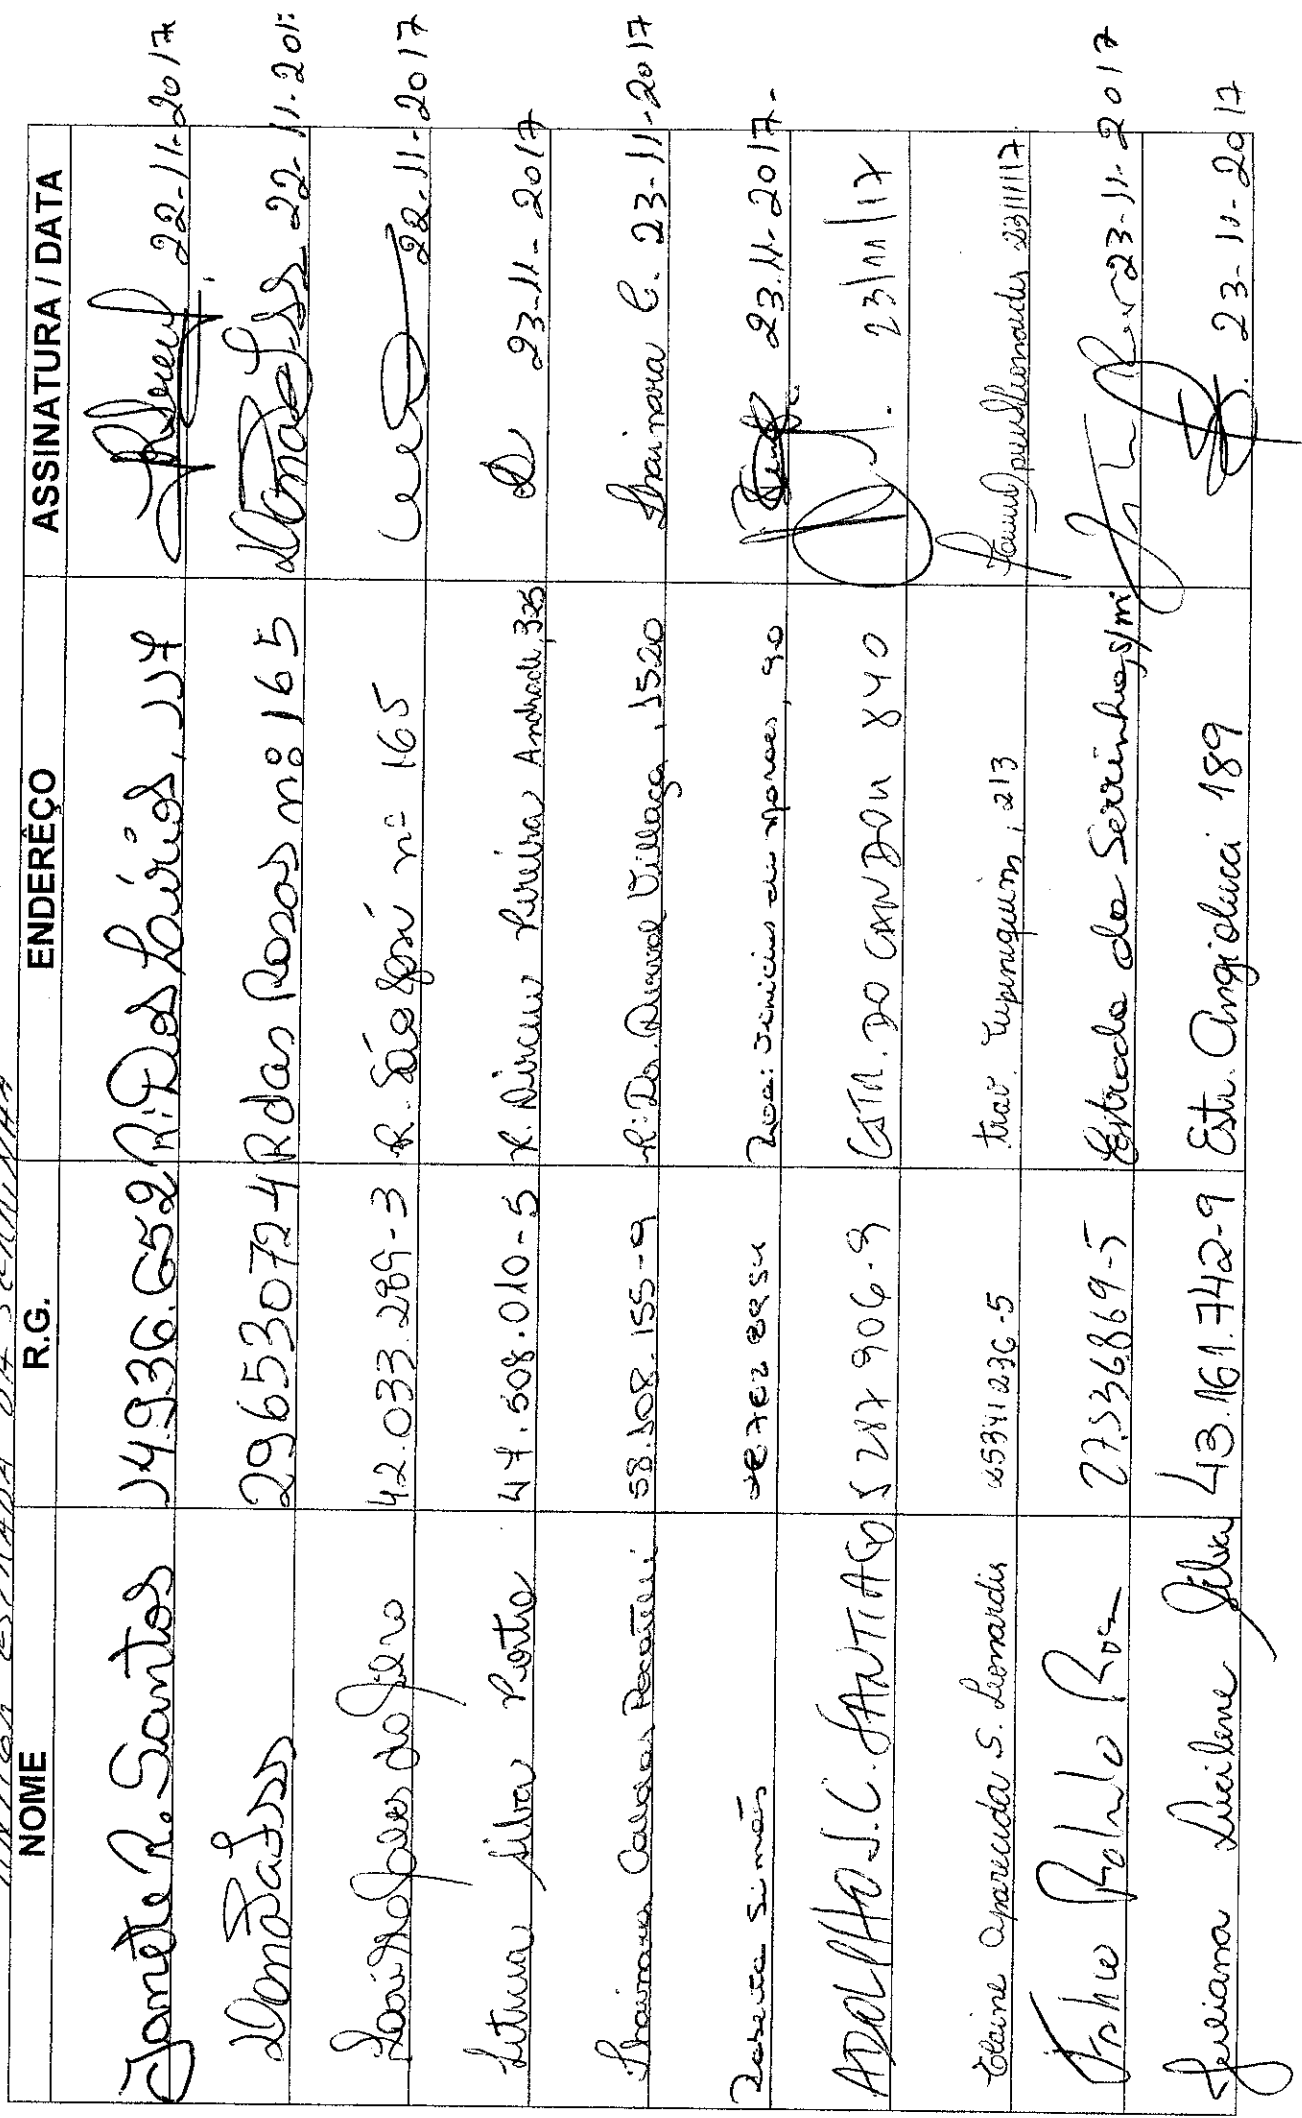 ESTRADA DA SERRINHA
NOME R.G. ENDERÊÇO ASSINATURA / DATA
Janete R. Santos 14936.652 R: Dos Lírios, 117 22-11-2017
296530724 R das Rosas nº 165 22-11-201
42.033.289-3 R. São José nº 165 22-11-2017
Silva 47.508.010-5 R. Dirceu Pereira Andrade, 325 23-11-2017
Thainara Caldas 58.508.155-9 R: Dr. Durval Villaça, 1520 Thainara C. 23-11-2017
Roberta Simões Rua: Vinicius de Moraes, 90 23.11-2017-
ADOLPHO J.C. SANTIAGO 5287906-9 ESTR. DO CANDOU 840 23/11/17
Elaine aparecida S. Leonardis 25341236-5 trav. Tupiniquim, 213 23/11/17
27.536869-5 Estrada da Serrinha, s/nº 23-11-2017
Juliana Lucilene Silva 43.161.742-9 Estr. Angiolucci 189 23-11-2017